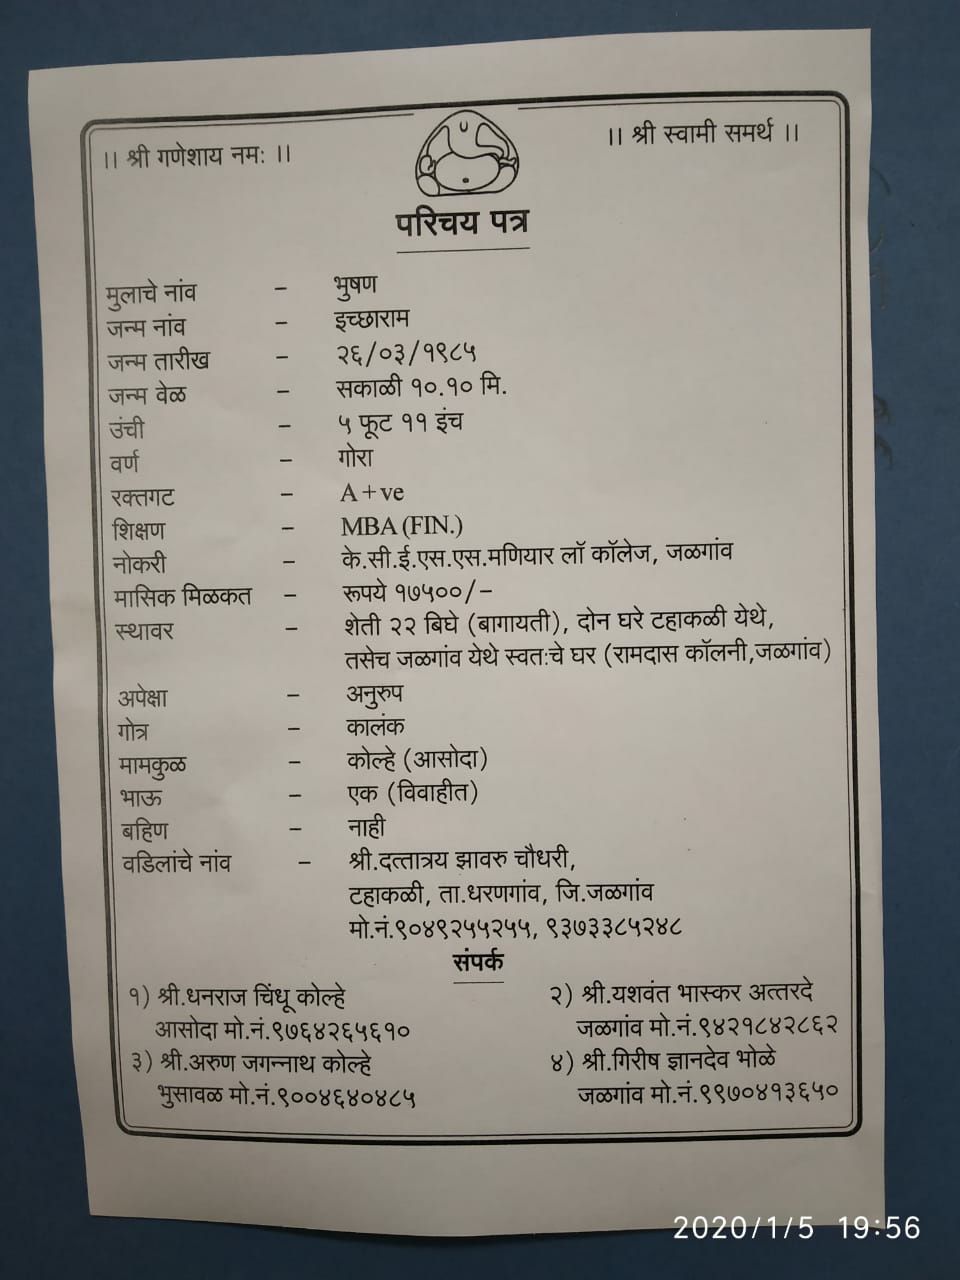 ।। श्री गणेशाय नमः ।।
।। श्री स्वामी समर्थ ।।
परिचय पत्र
मुलाचे नांव - भुषण
जन्म नांव - इच्छाराम
जन्म तारीख - २६/०३/१९८५
जन्म वेळ - सकाळी १०.१० मि.
उंची - ५ फूट ११ इंच
वर्ण - गोरा
रक्तगट - A+ve
शिक्षण - MBA (FIN.)
नोकरी - के.सी.ई.एस.एस.मणियार लॉ कॉलेज, जळगांव
मासिक मिळकत - रूपये १७५००/-
स्थावर - शेती २२ बिघे (बागायती), दोन घरे टहाकळी येथे,
तसेच जळगांव येथे स्वतःचे घर (रामदास कॉलनी,जळगांव)
अपेक्षा - अनुरुप
गोत्र - कालंक
मामकुळ - कोल्हे (आसोदा)
भाऊ - एक (विवाहीत)
बहिण - नाही
वडिलांचे नांव - श्री.दत्तात्रय झावरु चौधरी,
टहाकळी, ता.धरणगांव, जि.जळगांव
मो.नं.९०४९२५५२५५, ९३७३३८५२४८
संपर्क
१) श्री.धनराज चिंधू कोल्हे
आसोदा मो.नं.९७६४२६५६१०
२) श्री.यशवंत भास्कर अत्तरदे
जळगांव मो.नं.९४२१८४२८६२
३) श्री.अरुण जगन्नाथ कोल्हे
भुसावळ मो.नं.९००४६४०४८५
४) श्री.गिरीष ज्ञानदेव भोळे
जळगांव मो.नं.९९७०४१३६५०
2020/1/5 19:56